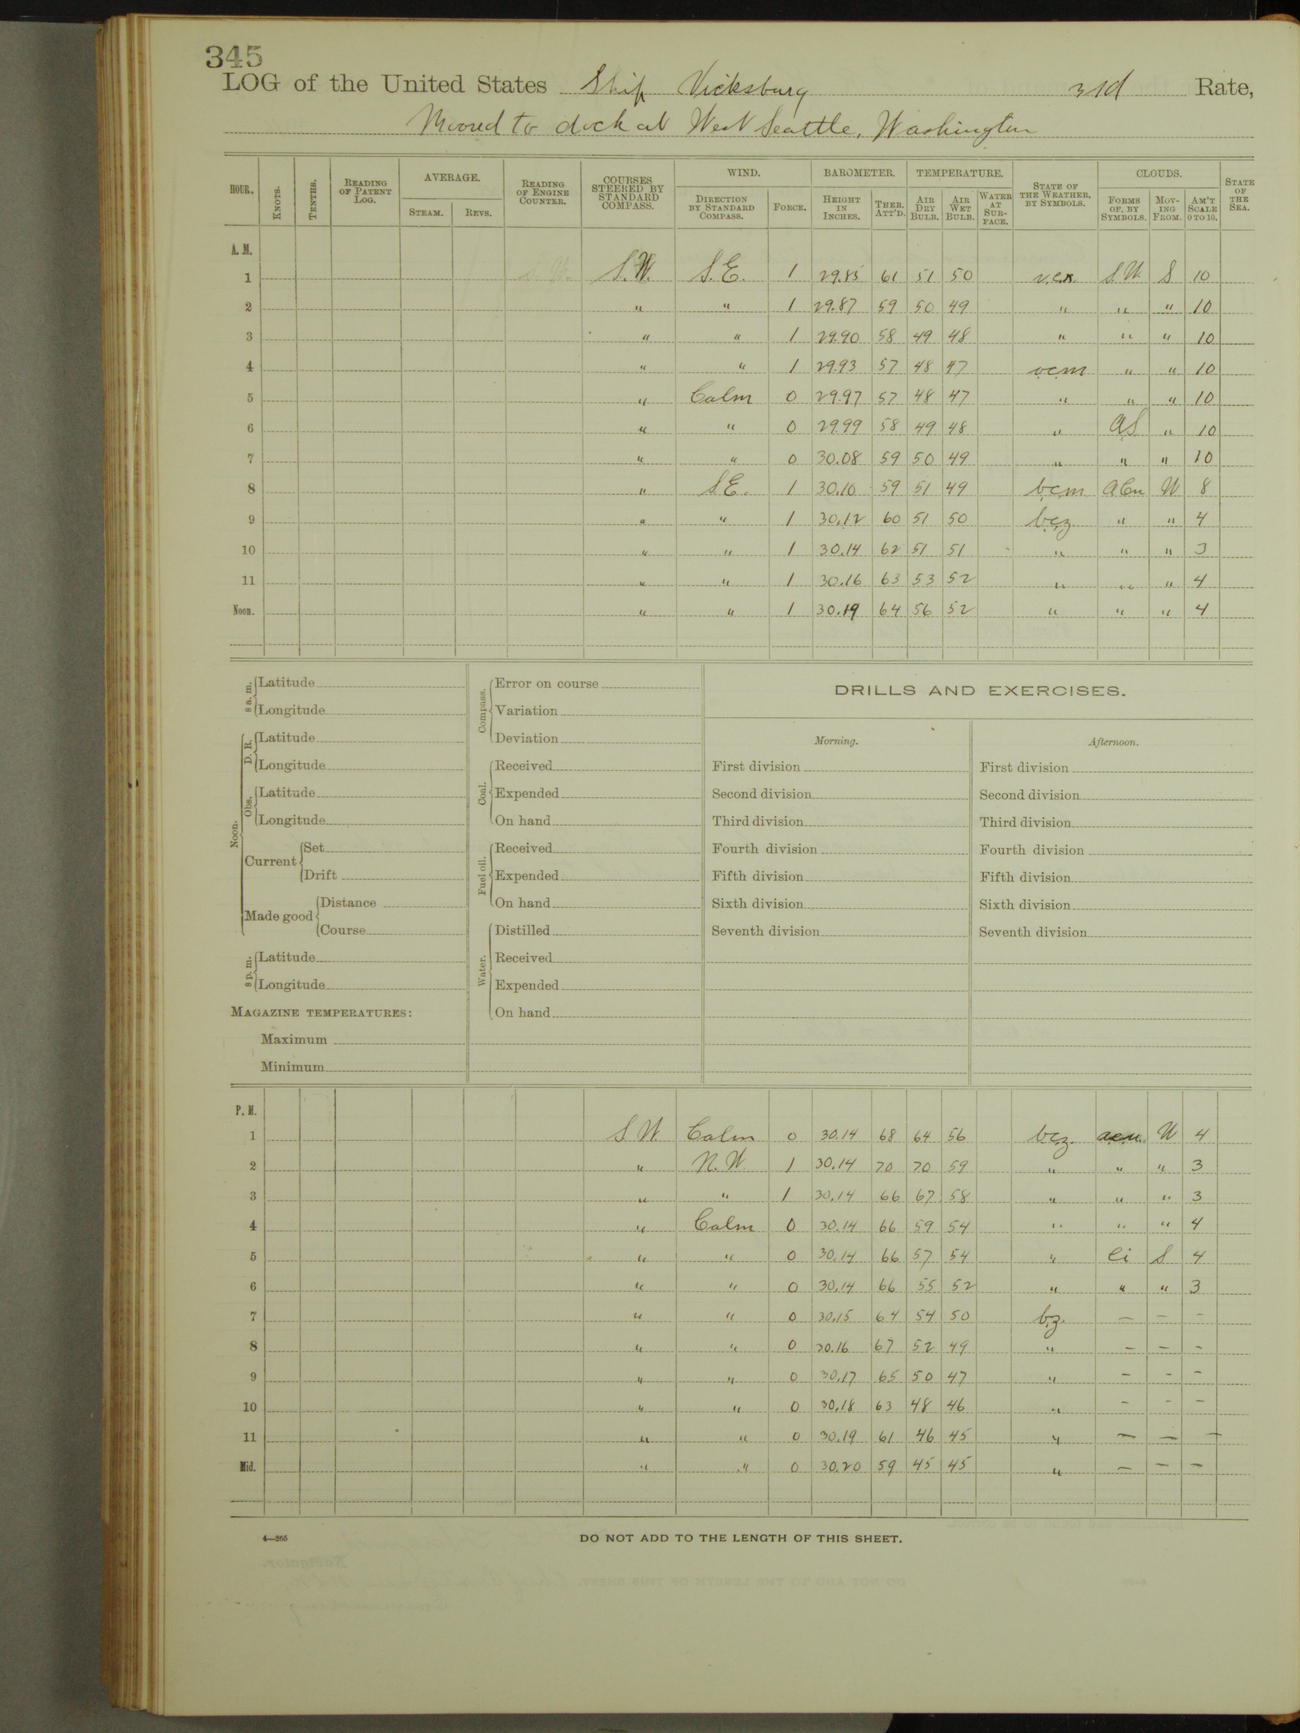 345
LOG of the United States Ship Vicksburg 3rd Rate,
Moored to dock at West Seattle, Washington
HOUR. KNOTS. TENTHS. READING OF PATENT LOG. AVERAGE. STEAM. REVS. READING OF ENGINE COUNTER. COURSES STEERED BY STANDARD COMPASS. WIND. DIRECTION BY STANDARD COMPASS. FORCE. BAROMETER. HEIGHT IN INCHES. THER. ATT'D. TEMPERATURE. AIR DRY BULB. AIR WET BULB. WATER AT SURFACE. STATE OF THE WEATHER, BY SYMBOLS. CLOUDS. FORMS OF, BY SYMBOLS. MOVING FROM. AM'T SCALE 0 TO 10. STATE OF THE SEA.
A. M.
1 S.W. S.E. 1 29.85 61 51 50 S 10
2 " " 1 29.87 59 50 49 " " " 10
3 " " 1 29.90 58 49 48 " " " 10
4 " " 1 29.93 57 48 47 ocm " " 10
5 " Calm 0 29.97 57 48 47 " " " 10
6 " " 0 29.99 58 49 48 " AS " 10
7 " " 0 30.08 59 50 49 " " " 10
8 " S.E. 1 30.10 59 51 49 bcm ACu W 8
9 " " 1 30.12 60 51 50 bcz " " 4
10 " " 1 30.14 62 51 51 " " " 3
11 " " 1 30.16 63 53 52 " " " 4
Noon. " " 1 30.19 64 56 52 " " " 4
8 a. m. Latitude
Longitude
Noon. D. R. Latitude
Longitude
Obs. Latitude
Longitude
Current Set
Drift
Made good Distance
Course
8 p. m. Latitude
Longitude
MAGAZINE TEMPERATURES:
Maximum
Minimum
Compass. Error on course
Variation
Deviation
Coal. Received
Expended
On hand
Fuel oil. Received
Expended
On hand
Water. Distilled
Received
Expended
On hand
DRILLS AND EXERCISES.
Morning.
First division
Second division
Third division
Fourth division
Fifth division
Sixth division
Seventh division
Afternoon.
First division
Second division
Third division
Fourth division
Fifth division
Sixth division
Seventh division
P. M.
1 S W Calm 0 30.14 68 64 56 bcz. acu W 4
2 " N. W 1 30.14 70 70 59 " " " 3
3 " " 1 30.14 66 67 58 " " " 3
4 " Calm 0 30.14 66 59 54 " " " 4
5 " " 0 30.14 66 57 54 " Ci S 4
6 " " 0 30.14 66 55 52 " " " 3
7 " " 0 30.15 64 54 50 bz. — — -
8 " " 0 30.16 67 52 49 " — — -
9 " " 0 30.17 65 50 47 " - - -
10 " " 0 30.18 63 48 46 " - - -
11 " " 0 30.19 61 46 45 " — — —
Mid. " " 0 30.20 59 45 45 " — — —
4—265
DO NOT ADD TO THE LENGTH OF THIS SHEET.